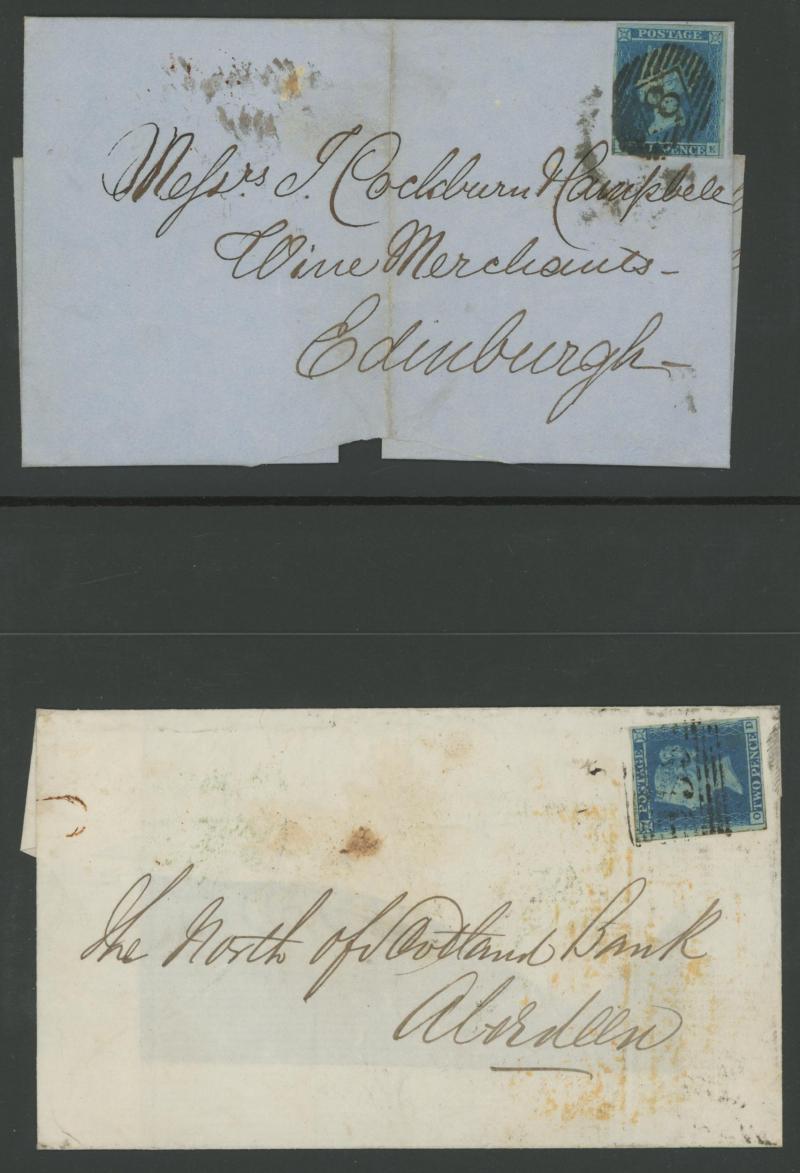 POSTAGE
8
PENCE K
Messrs J Cockburn & Campbell
Wine Merchants
Edinburgh
POSTAGE
O TWO PENCE D
The North of Scotland Bank
Aberdeen